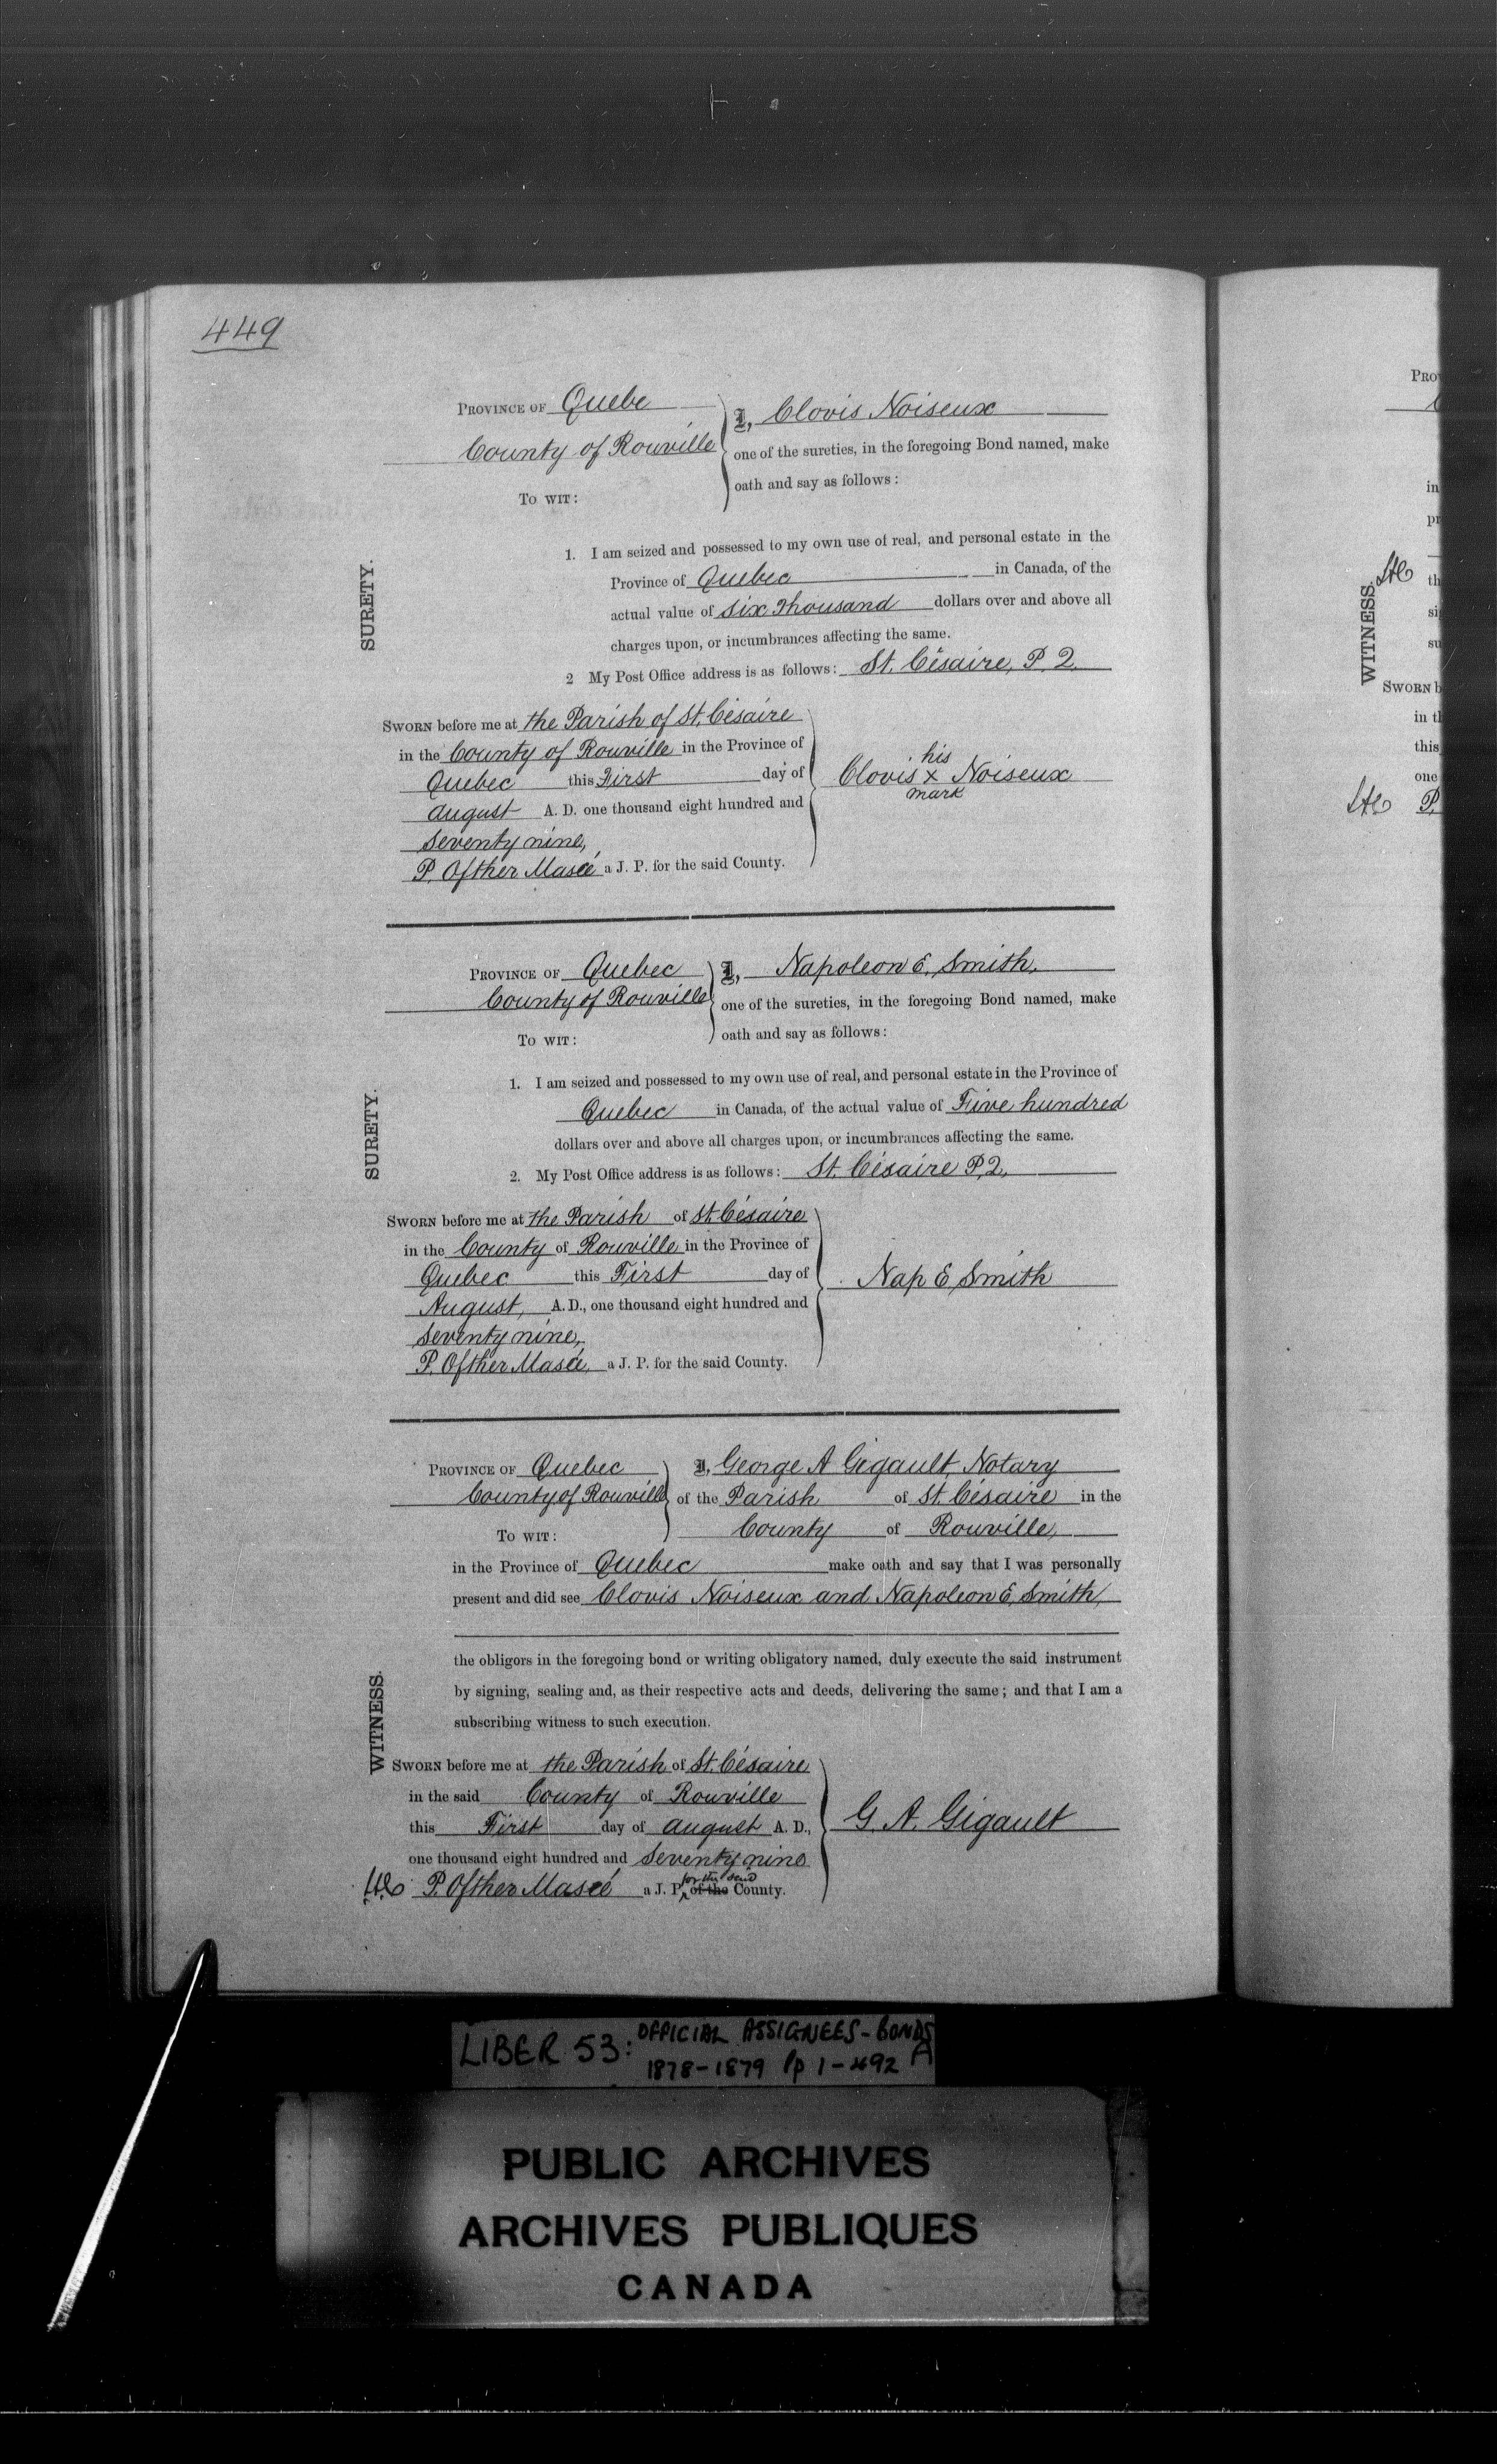 449
PROVINCE OF Quebe
County of Rouville
TO WIT:
I, Clovis Noiseux
one of the sureties, in the foregoing Bond named, make
oath and say as follows:
SURETY.
1. I am seized and possessed to my own use of real, and personal estate in the
Province of Quebec in Canada, of the
actual value of Six Thousand dollars over and above all
charges upon, or incumbrances affecting the same.
2 My Post Office address is as follows: St. Césaire, P. Q.
SWORN before me at the Parish of St. Césaire
in the County of Rouville in the Province of
Quebec this First day of
August A. D. one thousand eight hundred and
seventy nine,
P. Ofther Masсé a J. P. for the said County.
his
Clovis x Noiseux
mark
PROVINCE OF Quebec
County of Rouville
TO WIT:
I, Napoleon E. Smith,
one of the sureties, in the foregoing Bond named, make
oath and say as follows:
SURETY.
1. I am seized and possessed to my own use of real, and personal estate in the Province of
Quebec in Canada, of the actual value of Five hundred
dollars over and above all charges upon, or incumbrances affecting the same.
2. My Post Office address is as follows: St. Césaire P. Q,
SWORN before me at the Parish of St. Césaire
in the County of Rouville in the Province of
Quebec this First day of
August, A. D., one thousand eight hundred and
seventy nine,
P. Ofther Massé, a J. P. for the said County.
Nap E. Smith
PROVINCE OF Quebec
County of Rouville
TO WIT:
I, George A Gigault, Notary
of the Parish of St. Césaire in the
County of Rouville,
in the Province of Quebec make oath and say that I was personally
present and did see Clovis Noiseux and Napoleon E. Smith,
the obligors in the foregoing bond or writing obligatory named, duly execute the said instrument
by signing, sealing and, as their respective acts and deeds, delivering the same; and that I am a
subscribing witness to such execution.
WITNESS.
SWORN before me at the Parish of St. Césaire
in the said County of Rouville
this First day of August A. D.,
one thousand eight hundred and seventy nine
for the said
P. Ofther Massé a J. P. of the County.
G. A. Gigault
PRO
in
pr
WITNESS.
th
si
su
SWORN b
in t
this
one
P.
LIBER 53: OFFICIAL ASSIGNEES-BONDS
1878-1879 Pp 1-492 A
PUBLIC ARCHIVES
ARCHIVES PUBLIQUES
CANADA